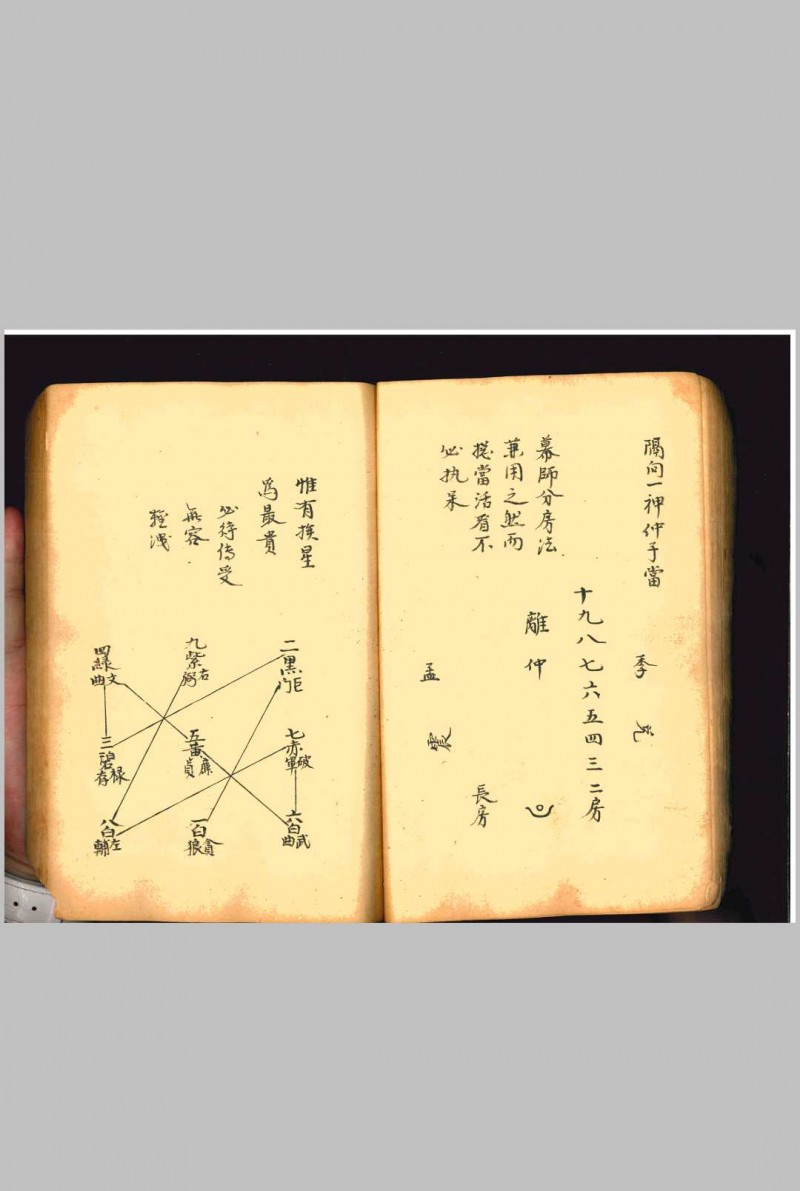 隔向一神仲子當
季
兌
十九八七六五四三二房
幕師分房法
兼用之然而
挨當活看不
必执呆
離仲
孟
震
長房
惟有挨星
爲最貴
必待傳受
無容
輕洩
二黑巨門
九紫右弼
四綠文曲
七赤破軍
五黃廉貞
三碧祿存
六白武曲
一白貪狼
八白左輔